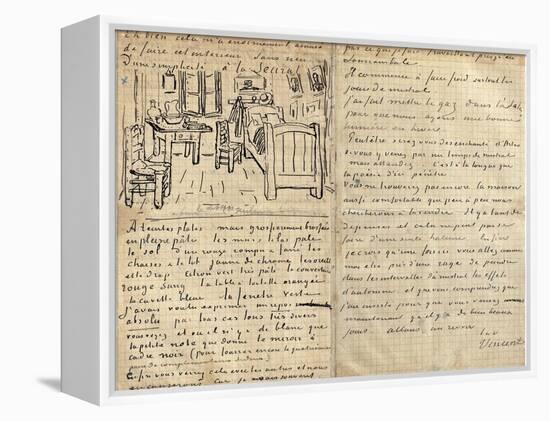 eh bien cela m'a énormément amusé
de faire cet intérieur Sans rien
D'une simplicité à la Seurat
A teintes plates mais grossièrement brossées
en pleine pâte les murs lilas pâle
le sol d'un rouge rompu & fané les
chaises & le lit jaune de chrome les oreillers
et le drap citron vert très pâle la couverture
rouge sang la table à toilette orangée
la cuvette bleue la fenêtre verte
J'avais voulu exprimer un repos
absolu par tous ces tons très divers
vous voyez et où il n'y a de blanc que
la petite note que donne le miroir à
cadre noir (pour fourrer encore la quatrième
paire de complémentaires dedans)
Enfin vous verrez cela avec les autres et nous
en causerons car je ne sais souvent
Il commence à faire froid surtout les
jours de mistral
J'ai fait mettre le gaz dans l'atelier
pour que nous ayons une bonne
lumière en hiver
Peutêtre serez vous désenchanté d'Arles
si vous y venez par un temps de mistral
mais attendez c'est à la longue que
la poésie d'ici pénètre
Vous ne trouverez pas encore la maison
aussi confortable que peu à peu nous
chercherons à la rendre Il y a tant de
dépenses et cela ne peut pas se
faire d'une seule haleine Enfin
je crois qu'une fois ici vous allez comme
moi être pris d'une rage de peindre
dans les intervalles du mistral les effets
d'automne et que vous comprendrez que
j'ai insisté pour que vous veniez
maintenant qu'il y a de bien beaux
jours allons au revoir
t. à v.
Vincent